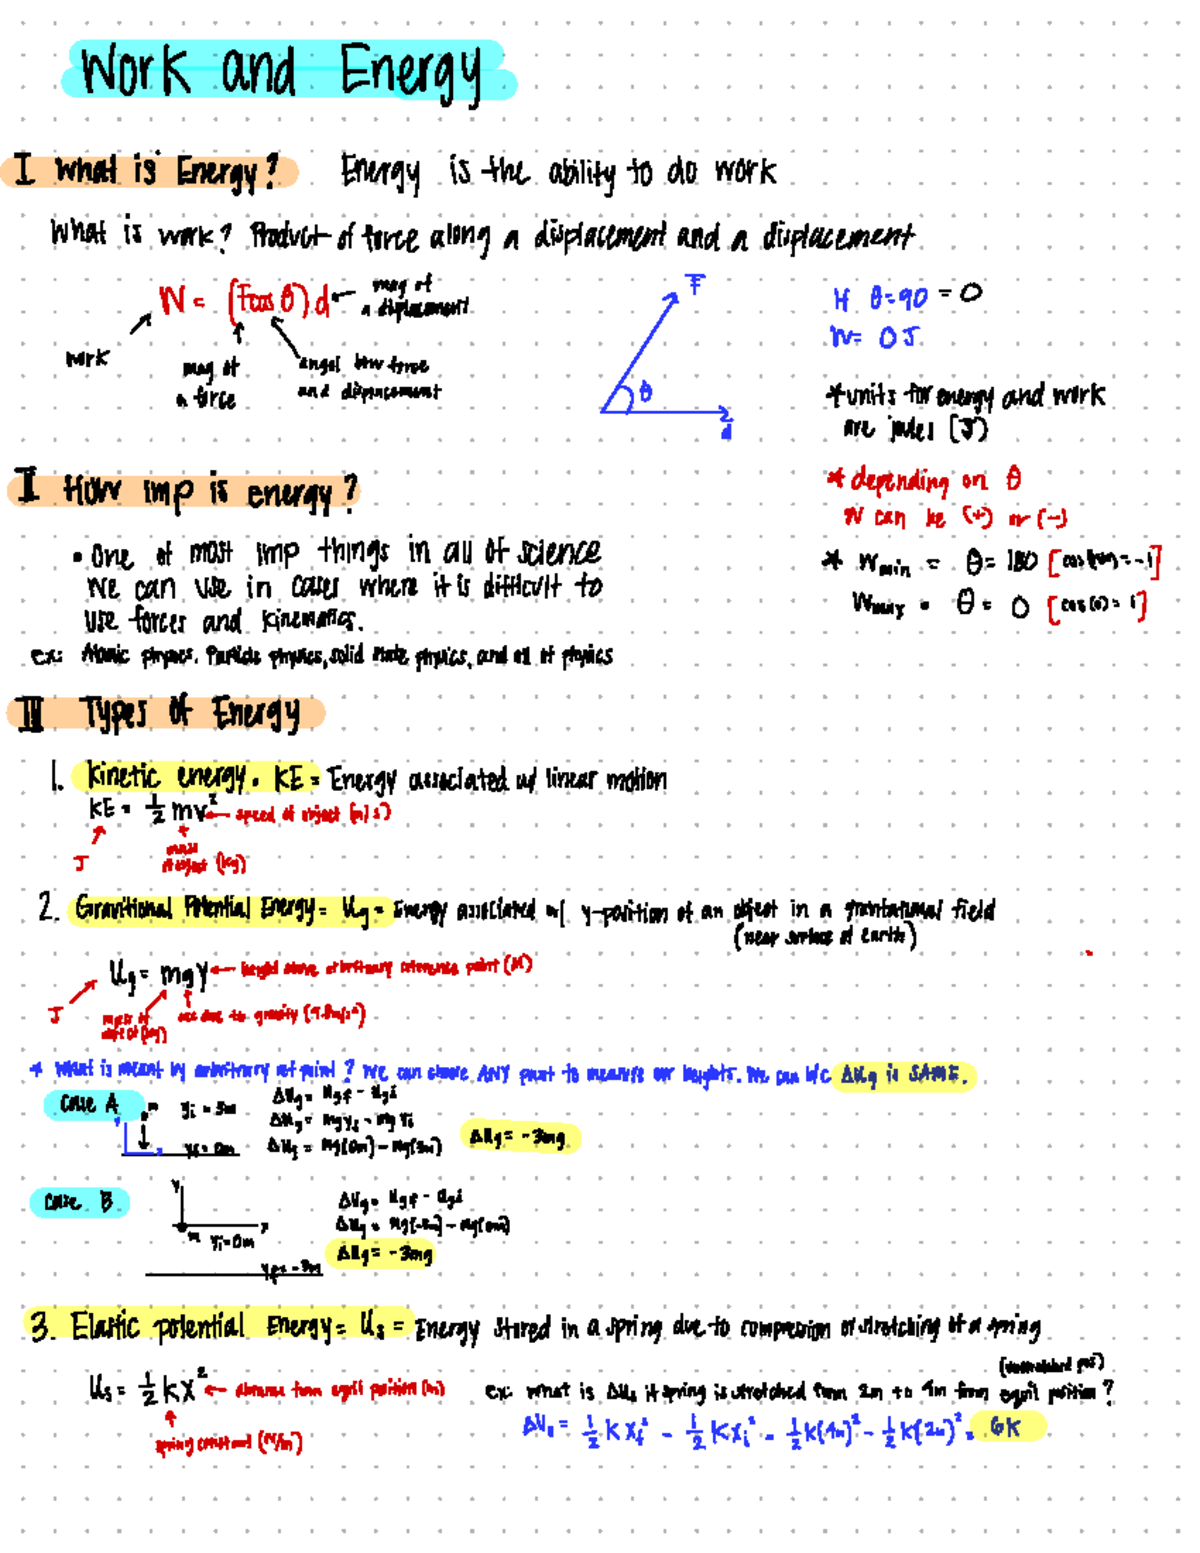 Work and Energy
I What is Energy? Energy is the ability to do work
What is work? Product of force along a displacement and a displacement
W = (Fcos θ) d ← mag of a displacement
work
mag of a force
angel btw force and displacement
F
θ
d
If θ=90 = 0
W= 0J
* units for energy and work
are joules (J)
* depending on θ
W can be (+) or (-)
* Wmin = θ= 180 [cos(180)=-1]
Wmax = θ= 0 [cos(0)=1]
II How imp is energy?
• One of most imp things in all of science
We can use in cases where it is difficult to
use forces and kinematics.
ex: Atomic physics, Particle physics, solid state physics, and all of physics
III Types of Energy
1. Kinetic energy = KE = Energy associated w/ linear motion
KE = 1/2 mv² ← speed of object (m/s)
J
mass
of object (kg)
2. Gravitional Potential Energy = Ug = Energy associated w/ y-position of an object in a gravitational field
(near surface of earth)
Ug = mgy ← height above arbitrary reference point (M)
J
mass of
object (kg)
acc due to gravity (9.8m/s²)
* What is meant by arbitrary ref point? We can choose ANY point to measure our heights. We can b/c ΔUg is SAME.
Case A
m
yi = 3m
yf = 0m
ΔUg = Ugf - Ugi
ΔUg = mgyf - mgyi
ΔUg = mg(0m) - mg(3m)
ΔUg = -3mg
Case B
y
x
m
yi=0m
yf = -3m
ΔUg = Ugf - Ugi
ΔUg = mg(-3m) - mg(0m)
ΔUg = -3mg
3. Elastic potential Energy = Us = Energy stored in a spring due to compression or stretching of a spring
Us = 1/2 kx² ← distance from equil position (m)
spring constant (N/m)
(unstretched pos)
ex: what is ΔUs if spring is stretched from 2m to 4m from equil position?
ΔUs = 1/2 kxf² - 1/2 kxi² = 1/2 k(4m)² - 1/2 k(2m)² = 6K